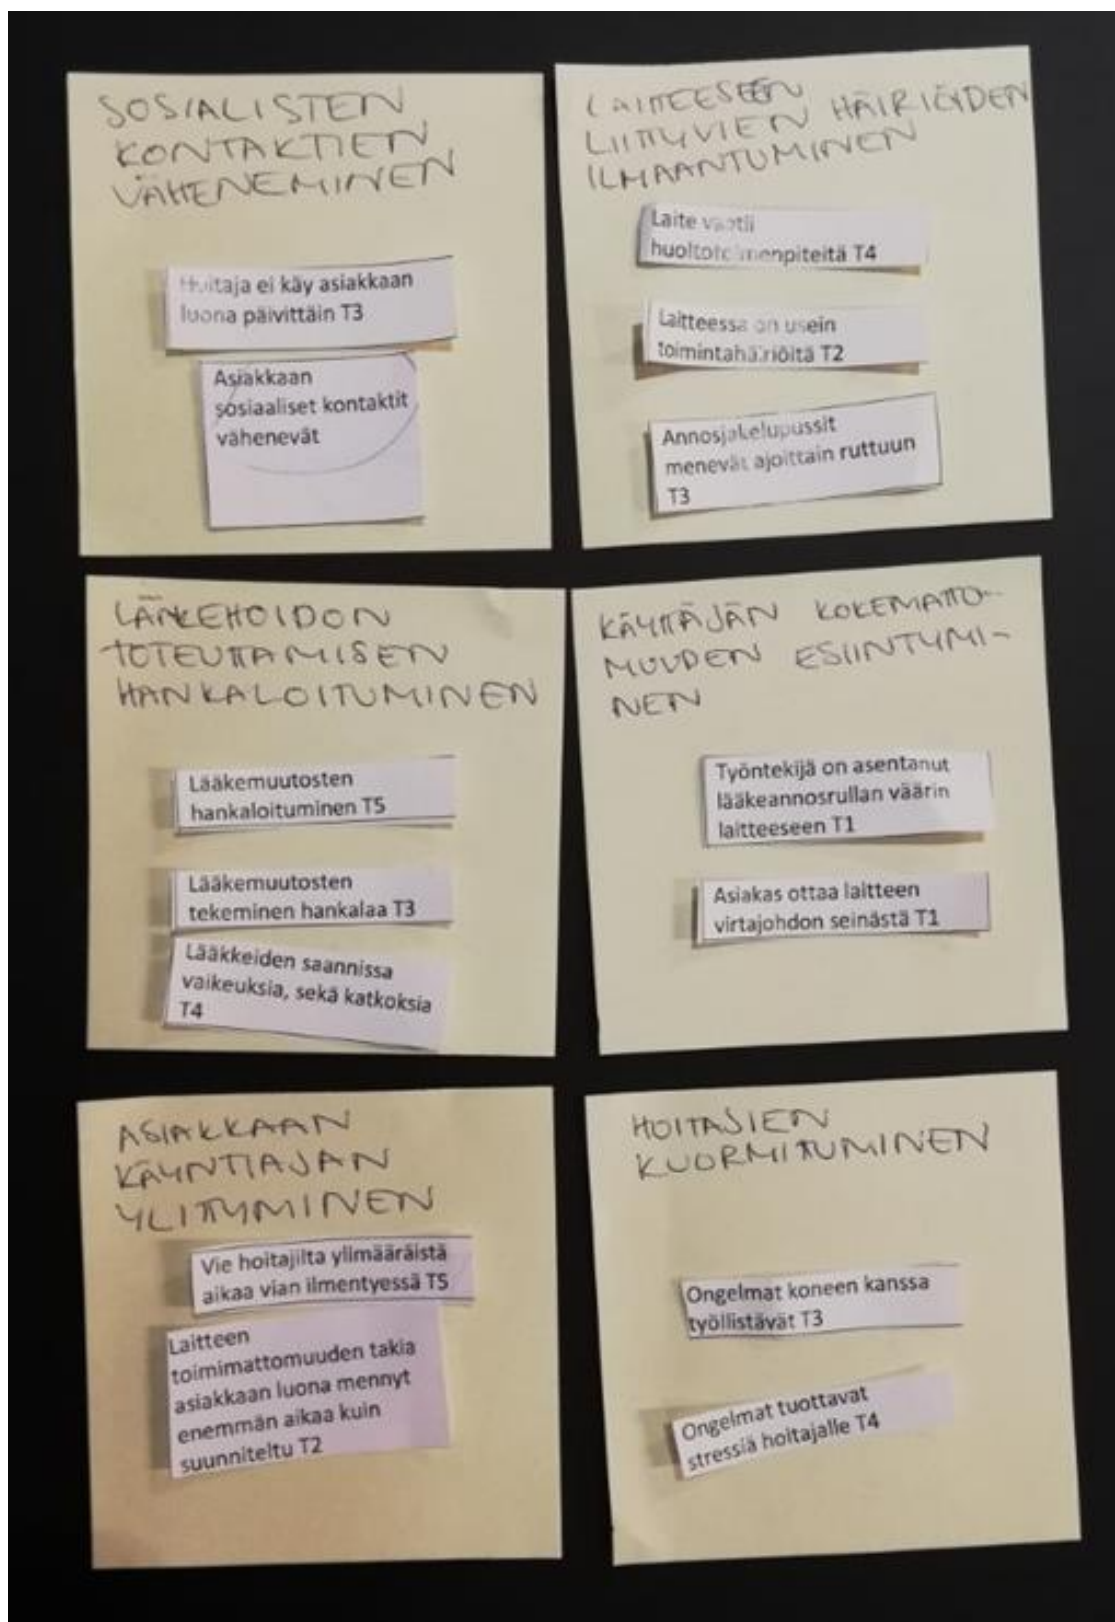 SOSIALISTEN
KONTAKTIEN
VÄHENEMINEN
Hoitaja ei käy asiakkaan
luona päivittäin T3
Asiakkaan
sosiaaliset kontaktit
vähenevät
LAITTEESEEN
LIITTYVIEN HÄIRIÖIDEN
ILMAANTUMINEN
Laite vaatii
huoltotoimenpiteitä T4
Laitteessa on usein
toimintahäiriöitä T2
Annosjakelupussit
menevät ajoittain ruttuun
T3
LÄÄKEHOIDON
TOTEUTTAMISEN
HANKALOITUMINEN
Lääkemuutosten
hankaloituminen T5
Lääkemuutosten
tekeminen hankalaa T3
Lääkkeiden saannissa
vaikeuksia, sekä katkoksia
T4
KÄYTTÄJÄN KOKEMATTO-
MUUDEN ESIINTYMI-
NEN
Työntekijä on asentanut
lääkeannosrullan väärin
laitteeseen T1
Asiakas ottaa laitteen
virtajohdon seinästä T1
ASIAKKAAN
KÄYNTIAJAN
YLITTYMINEN
Vie hoitajilta ylimääräistä
aikaa vian ilmentyessä T5
Laitteen
toimimattomuuden takia
asiakkaan luona mennyt
enemmän aikaa kuin
suunniteltu T2
HOITAJIEN
KUORMITTUMINEN
Ongelmat koneen kanssa
työllistävät T3
Ongelmat tuottavat
stressiä hoitajalle T4